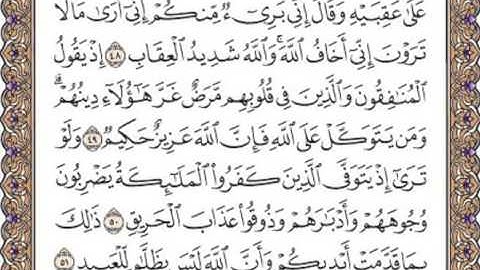 عَلَىٰ عَقِبَيْهِ وَقَالَ إِنِّي بَرِيٓءٌ مِّنكُمْ إِنِّيٓ أَرَىٰ مَا لَا
تَرَوْنَ إِنِّيٓ أَخَافُ ٱللَّهَۚ وَٱللَّهُ شَدِيدُ ٱلْعِقَابِ ٤٨ إِذْ يَقُولُ
ٱلْمُنَٰفِقُونَ وَٱلَّذِينَ فِي قُلُوبِهِم مَّرَضٌ غَرَّ هَٰٓؤُلَآءِ دِينُهُمْۗ
وَمَن يَتَوَكَّلْ عَلَى ٱللَّهِ فَإِنَّ ٱللَّهَ عَزِيزٌ حَكِيمٌ ٤٩ وَلَوْ
تَرَىٰٓ إِذْ يَتَوَفَّى ٱلَّذِينَ كَفَرُواْ ٱلْمَلَٰٓئِكَةُ يَضْرِبُونَ
وُجُوهَهُمْ وَأَدْبَٰرَهُمْ وَذُوقُواْ عَذَابَ ٱلْحَرِيقِ ٥٠ ذَٰلِكَ
بِمَا قَدَّمَتْ أَيْدِيكُمْ وَأَنَّ ٱللَّهَ لَيْسَ بِظَلَّٰمٍ لِّلْعَبِيدِ ٥١